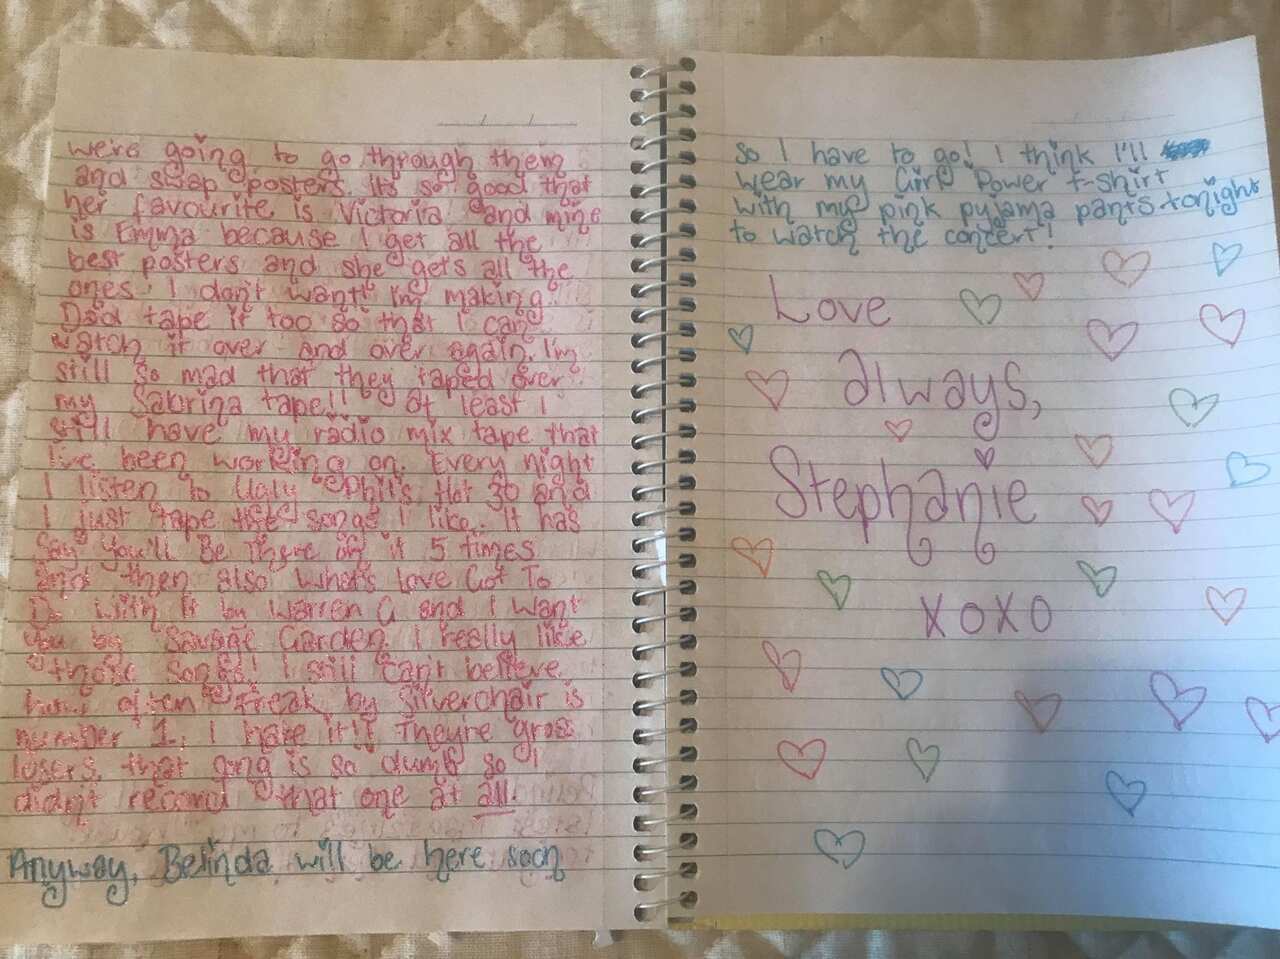 we're going to go through them
and swap posters. Its so good that
her favourite is Victoria and mine
is Emma because I get all the
best posters and she gets all the
ones I don't want! I'm making
Dad tape it too so that I can
watch it over and over again. I'm
still so mad that they taped over
my Sabrina tape!! At least I
still have my radio mix tape that
I've been working on. Every night
I listen to Ugly Phil's Hot 30 and
I just tape the songs I like. It has
Say You'll Be There on it 5 times
and then also What's Love Got To
Do With It by Warren G and I Want
You by Savage Garden. I really like
those songs! I still can't believe
how often Freak by Silverchair is
number 1. I hate it!! They're gross
losers, that song is so dumb so I
didn't record that one at all.
Anyway, Belinda will be here soon
so I have to go! I think I'll
wear my Girl Power t-shirt
with my pink pyjama pants tonight
to watch the concert!
Love
always,
Stephanie
XOXO